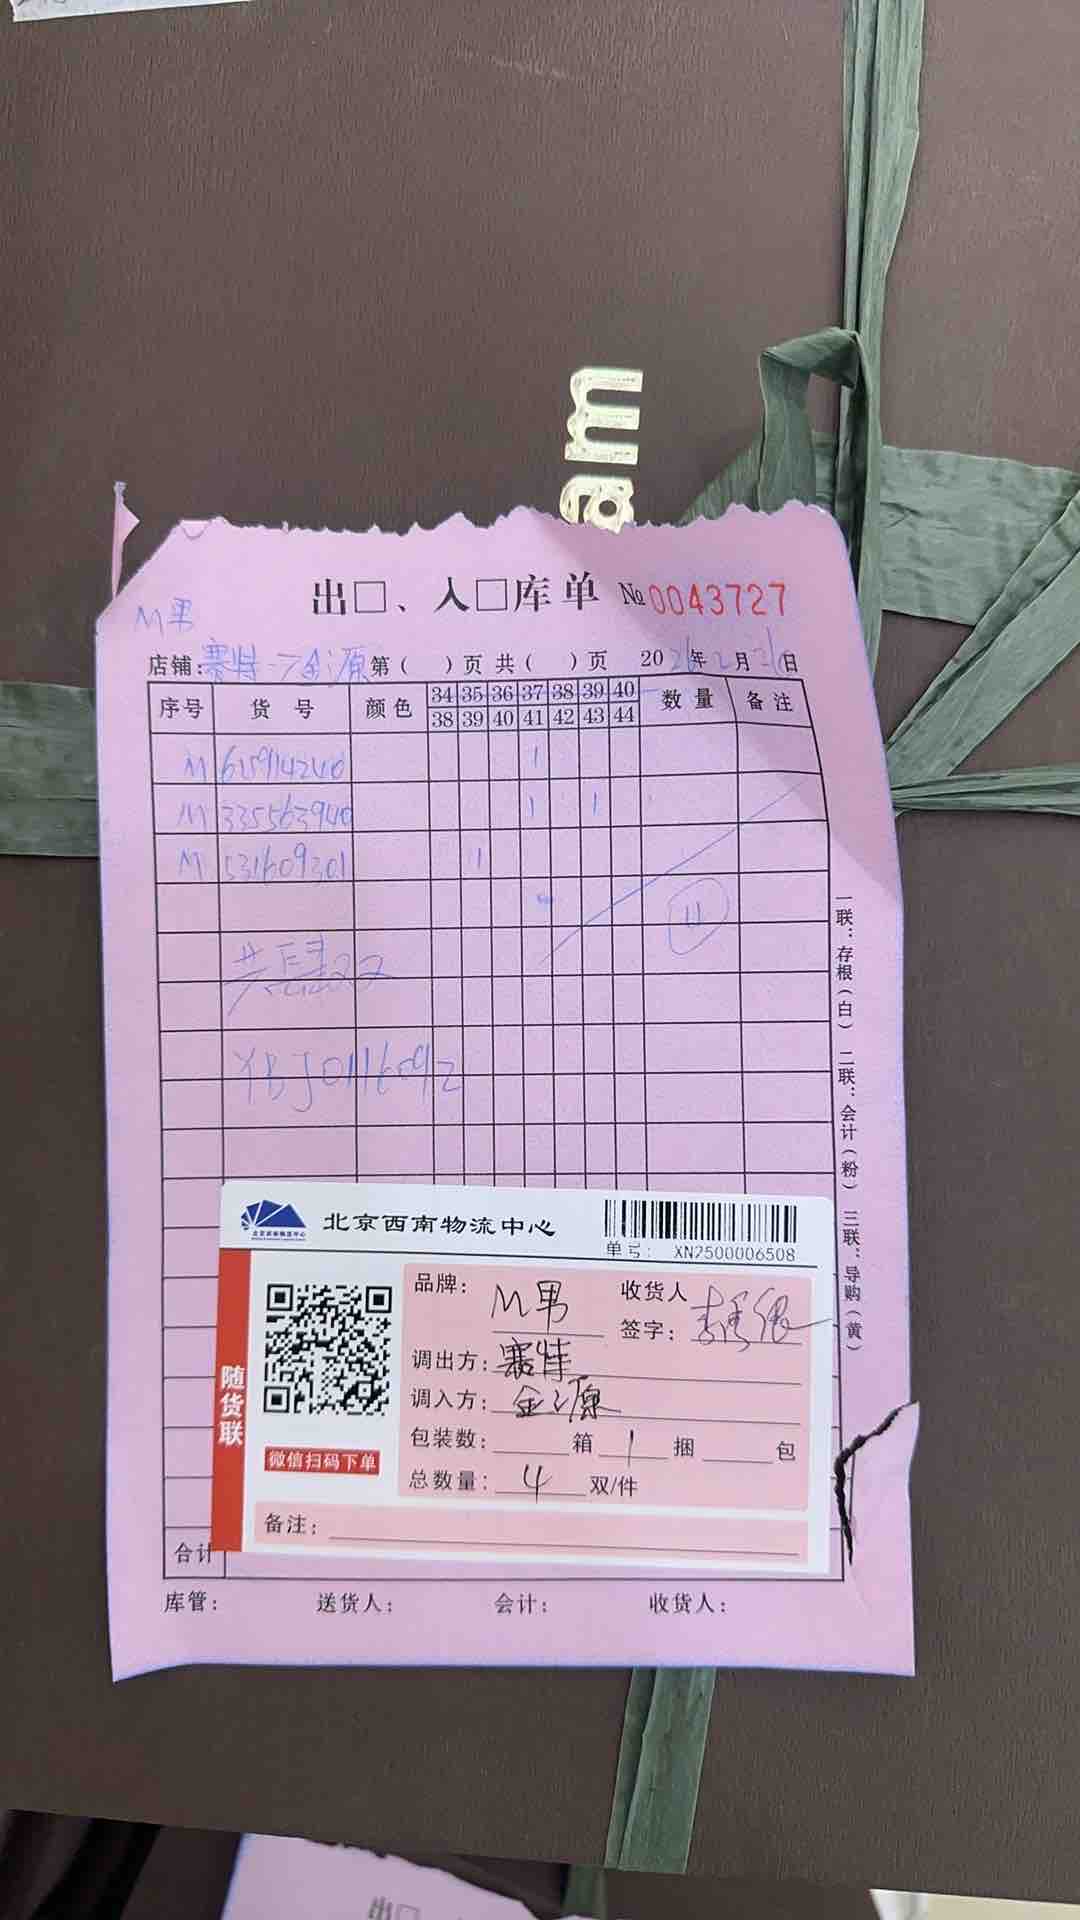 出□、入□库单 №0043727
M男
店铺:赛特→金源 第( )页 共( )页 2026年2月 日
序号 货号 颜色 34 35 36 37 38 39 40 数量 备注
38 39 40 41 42 43 44
M 615914240 1
M 335563940 1 1
M 531609301 1
共肆双
YBJ0116092
一联:存根(白) 二联:会计(粉) 三联:导购(黄)
北京西南物流中心
单号: XN2500006508
随货联
微信扫码下单
品牌: M男 收货人
签字:
调出方: 赛特
调入方: 金源
包装数: 箱 1 捆 包
总数量: 4 双/件
备注:
合计
库管: 送货人: 会计: 收货人:
出□